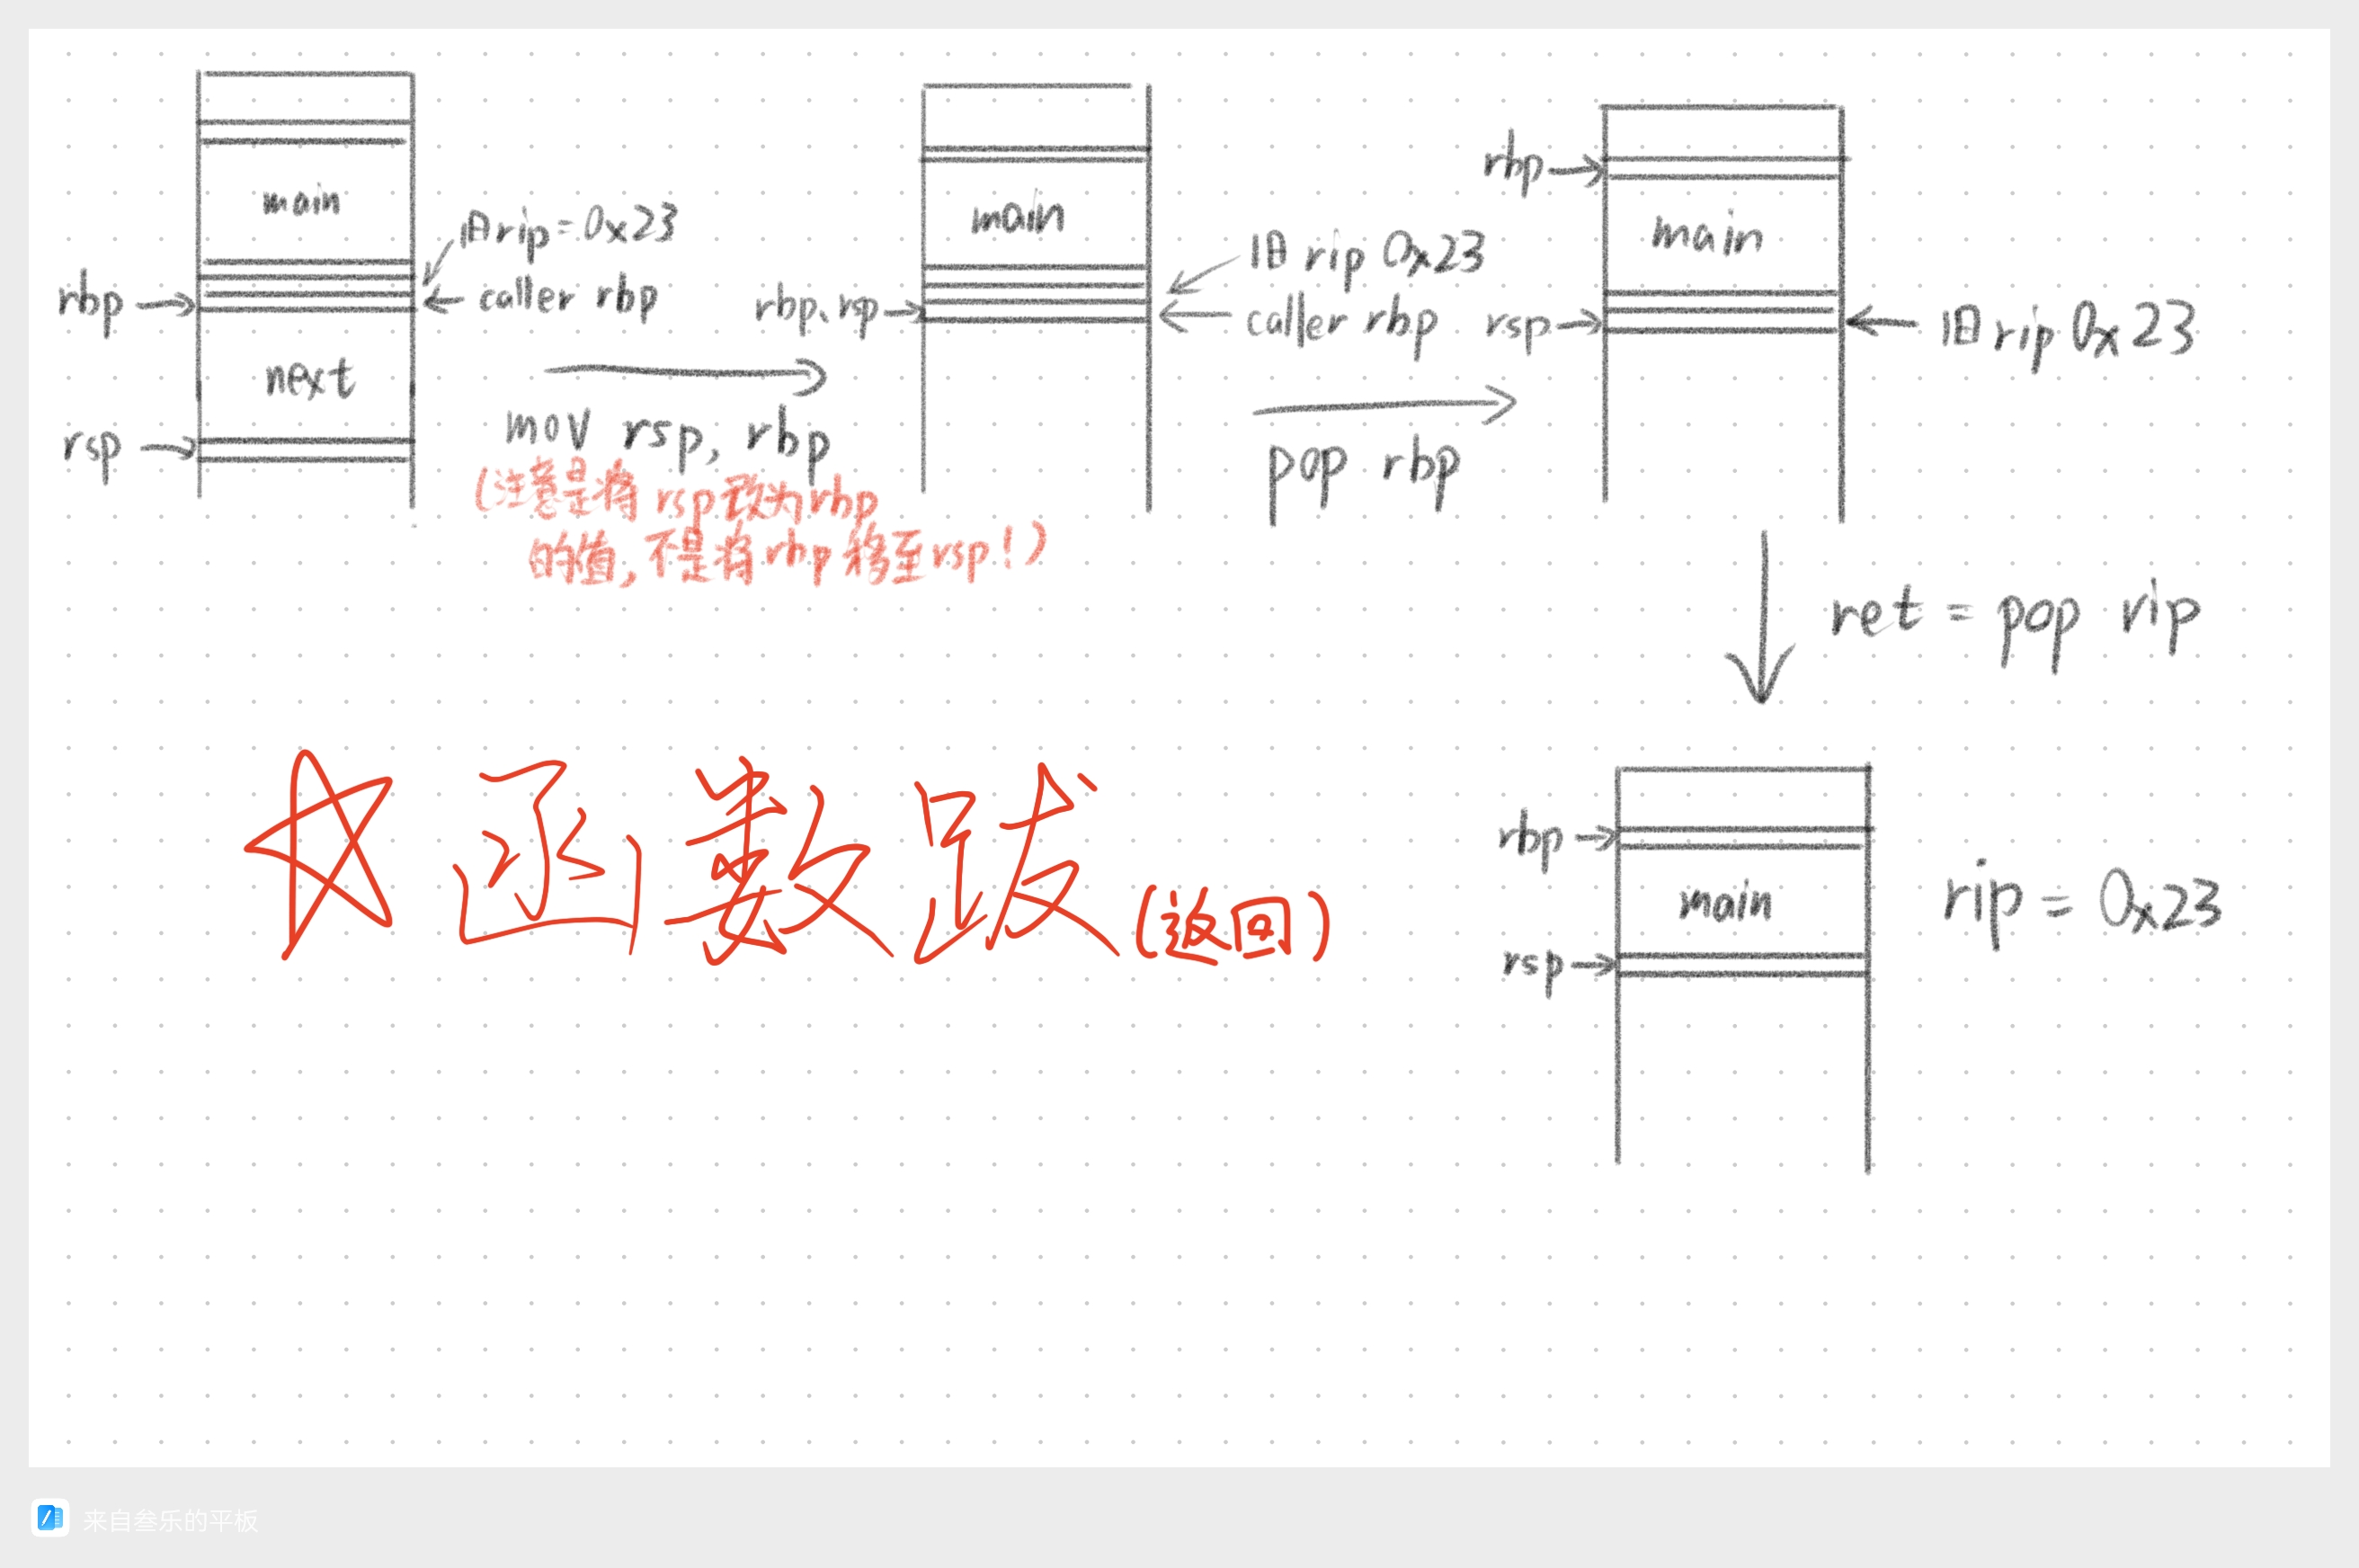 main
旧rip=0x23
rbp
caller rbp
next
rsp
mov rsp, rbp
(注意是将rsp改为rbp
的值,不是将rbp移至rsp!)
main
rbp、rsp
旧 rip 0x23
caller rbp
pop rbp
rbp
main
rsp
旧 rip 0x23
ret = pop rip
函数跋(返回)
rbp
main
rip = 0x23
rsp
来自叁乐的平板